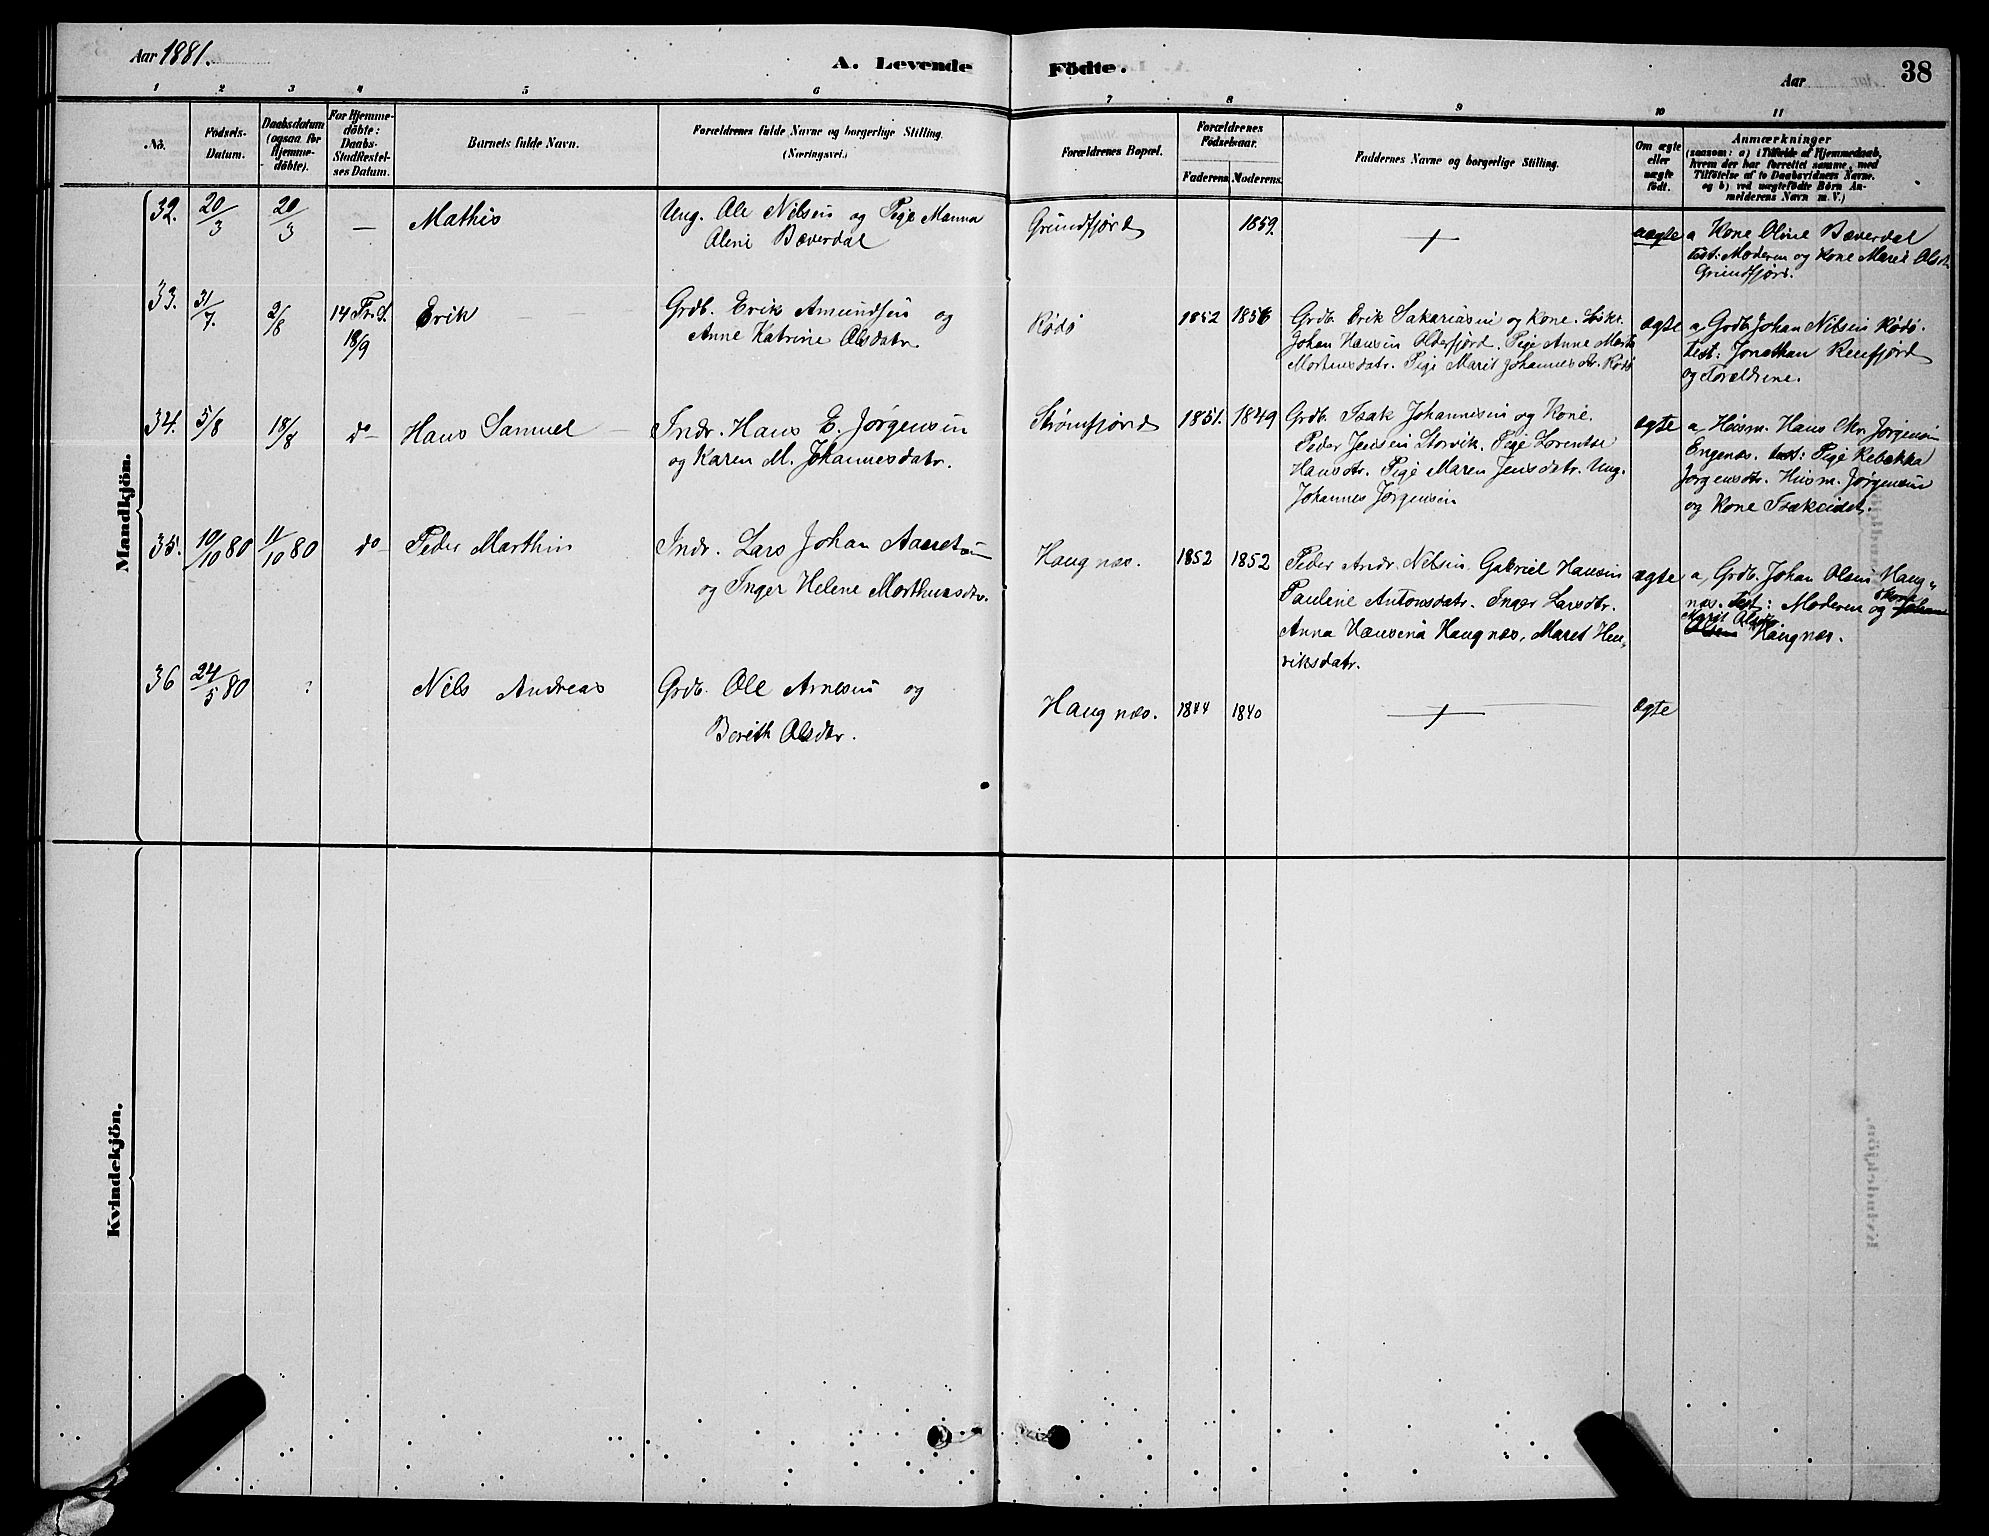 Aar 1881.
A. Levende Födte.
Aar
38
1 2 3 4 5 6 7 8 9 10 11
No.
Födsels-
Datum.
Daabsdatum
(ogsaa for
Hjemme-
döbte).
For Hjemme-
döbte:
Daabs-
Stadfæstel-
ses Datum.
Barnets fulde Navn.
Forældrenes fulde Navne og borgerlige Stilling.
(Næringsvei.)
Forældrenes Bopæl.
Forældrenes
Födselsaar.
Faderens. Moderens.
Faddernes Navne og borgerlige Stilling.
Om ægte
eller
uægte
födt.
Anmærkninger
(saasom: a) i Tilfælde af Hjemmedaab,
hvem der har forrettet samme, med
Tilföielse af to Daabsvidners Navne.
og b) ved uægtefödte Börn An-
melderens Navn m. V.)
Mandkjön.
32. 20/3 20/3 — Mathis
Ung. Ole Nilsen og Pige Manna
Oline Bæverdal
Grundfjord
1859.
+
uægte
a Kone Oline Bæverdal
test: Moderen og Kone Maret Olsd
Grundfjord.
33. 31/7. 2/8 14 Tr. S.
18/9
Erik
Grdb. Erik Amundsen og
Anne Katrine Olsdatr.
Rødø
1852 1856
Grdb. Erik Sakariasen og Kone.
Johan Hansen Olderfjord. Pige Anne
Mortensdatr. Pige Marit Johannesdtr. Rødø
ægte
a, Grdb. Johan Nilsen Rødø.
test: Jonathan Renfjord
og Forældrene.
34. 5/8 18/8 do— Hans Samuel
Indr. Hans E. Jørgensen
og Karen M. Johannesdatr.
Strømfjord
1851. 1849
Grdb. Isak Johannesen og Kone.
Peder Jensen Storvik. Pige Lorentse
Hansdtr. Pige Maren Jensdatr. Ung.
Johannes Jørgensen
ægte
a, Huusm. Hans Chr. Jørgensen
Engenæs. test: Pige Rebekka
Jørgensdtr. Husm. Jørgensen
og Kone Isakeidet.
35. 10/10 80 11/10 80 do— Peder Marthin
Indr. Lars Johan
og Inger Helene Morthensdtr.
Haugnæs.
1852 1852
Peder Andr. Nilsen, Gabriel Hansen
Pauline Antonsdatr. Inger Larsdtr.
Anna Hansena Haugnæs, Maret Hen-
riksdatr.
ægte
a, Grdb. Johan Olsen Haug-
næs. Test: Moderen og Kone Johan
Marit Olsdtr
Olsens Haugnæs.
36 24/5 80 ? Nils Andreas
Grdb. Ole Arnesen og
Berith Olsdtr.
Haugnæs.
1844 1840
+
ægte
Kvindekjön.